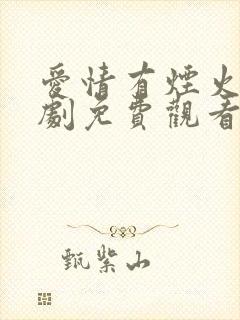 愛情有煙火
劇免費觀看
甄紫山